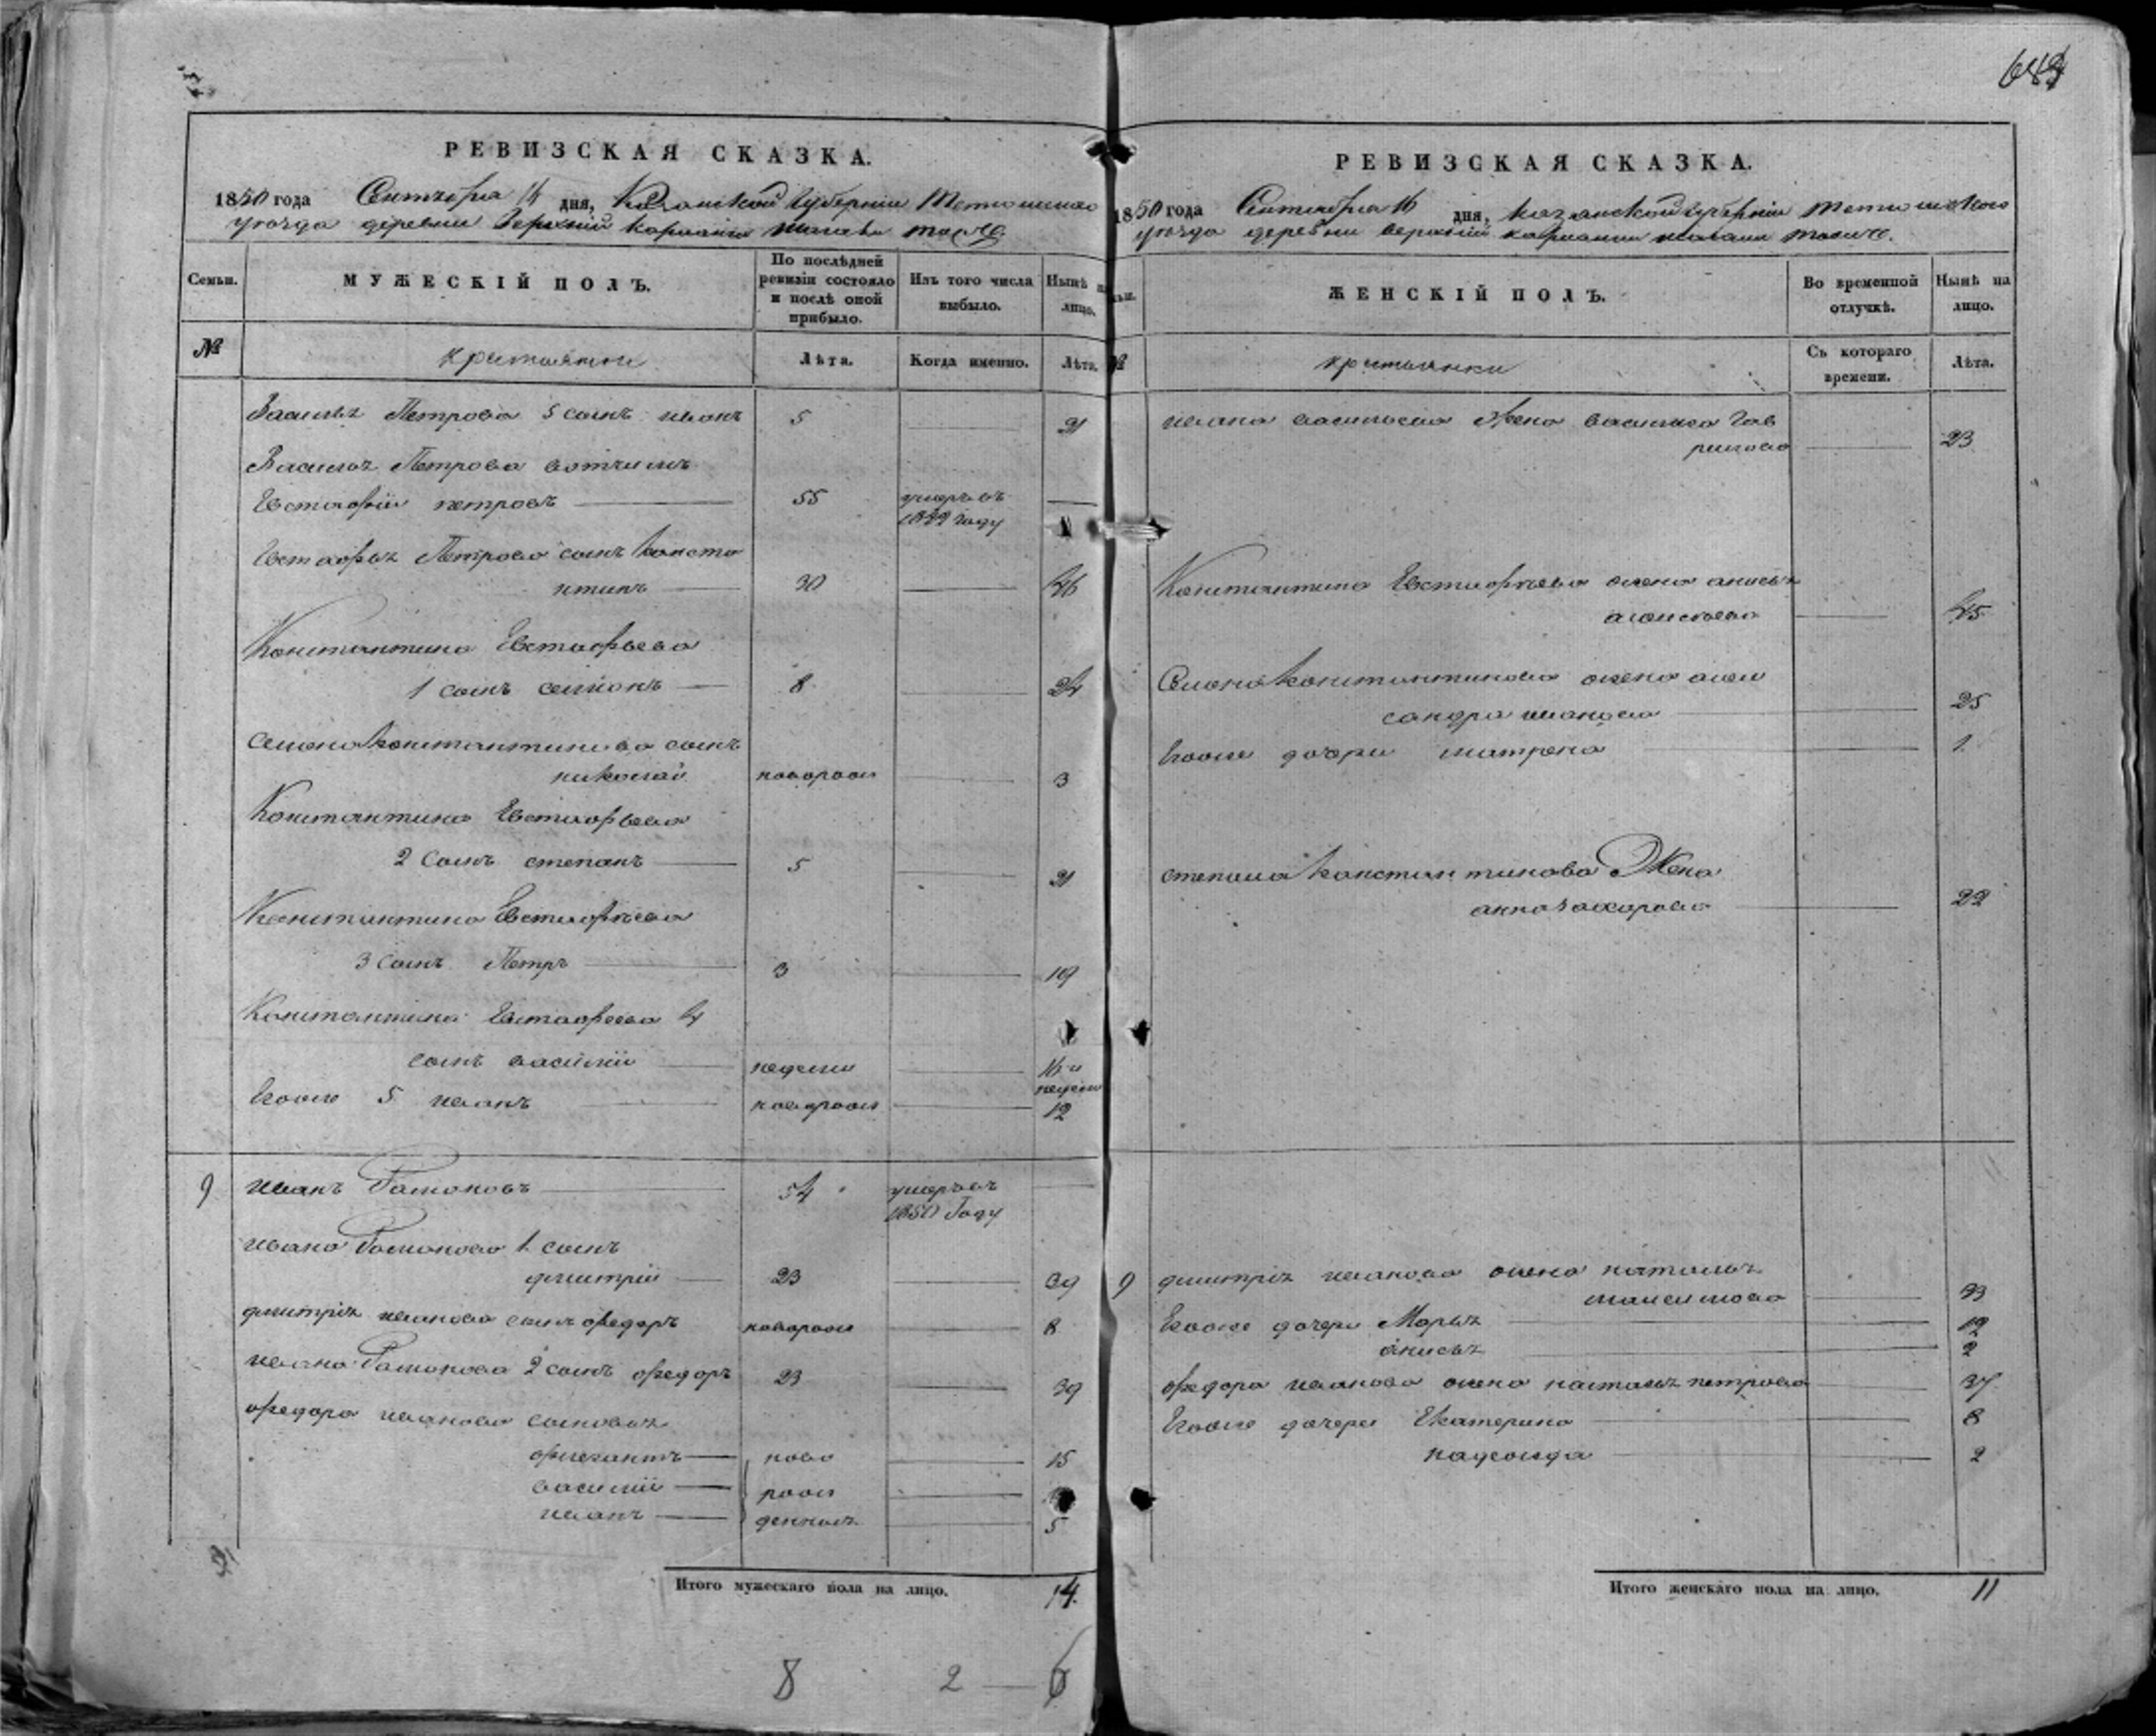 689
РЕВИЗСКАЯ СКАЗКА.
1850 года Сентября 16 дня, Казанской Губернии Тетюшскаго
уѣзда деревни Верхнiй
Семьи.
МУЖЕСКІЙ ПОЛЪ.
По послѣдней ревизіи состояло и послѣ оной прибыло.
Изъ того числа выбыло.
Нынѣ на лицо.
№
крестьяни
Лѣта.
Когда именно.
Лѣта.
Василья Петрова 5 сынъ иванъ 5 21
Василья Петрова вотчимъ
Евстафiй петровъ 55 умеръ въ
18 году
Евстафья Петрова сынъ Конста
нтинъ 30 46
Константина Евстафьева
1 сынъ семiонъ 8 24
Семена Константинова сынъ
николай новорож 3
Константина Евстафьева
2 сынъ степанъ 5 21
Константина Евстафьева
3 сынъ Петръ 3 19
Константина Евстафьева 4
сынъ василiй недели 16 и
недели
Егоже 5 иванъ новорож 12
9 иванъ Рамоновъ 54 умеръ въ
1850 Году
ивана Рамонова 1 сынъ
дмитрiй 23 39
дмитрiя иванова сынъ федоръ новорож 8
ивана Рамонова 2 сынъ федоръ 23 39
федора иванова сыновья
ново 15
василiй рож
иванъ денныя 5
Итого мужескаго пола на лицо. 14.
8 2 — 6
РЕВИЗСКАЯ СКАЗКА.
1850 года Сентября 16 дня, казанской губернiи тетюшскаго
уѣзда деревни верхнiй
ЖЕНСКІЙ ПОЛЪ.
Во временной отлучкѣ.
Нынѣ на лицо.
№
крестьянки
Съ котораго времени.
Лѣта.
ивана васильева Жена василиса Гав
рилова 23
Константина Евстафьева жена анисья
45
Семена Константинова жена алек
сандра иванова 25
Егоже дочери матрена 1
степана Константинова Жена
анна захарова 22
9 дмитрiя иванова жена наталья
максимова 33
Егоже дочери Марья 12
анисья 2
федора иванова жена настасья петрова 37
Егоже дочери Екатерина 8
надежда 2
Итого женскаго пола на лицо. 11